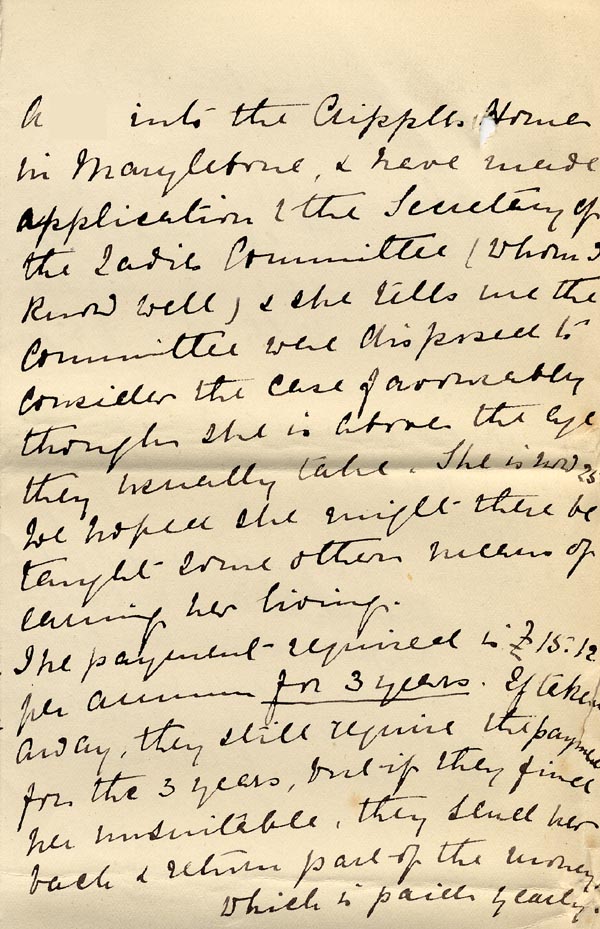 A into the Cripples Home
in Marylebone, & have made
application to the Secretary of
the Ladies Committee (whom I
know well) & she tells me the
Committee were disposed to
consider the case favourably
though she is above the age
they usually take. She is now 25
We hoped she might there be
taught some other means of
earning her living.
The payment required is £15.12
per annum for 3 years. If taken
away, they still require the payment
for the 3 years, but if they find
her unsuitable, they send her
back & return part of the money,
which is paid yearly.